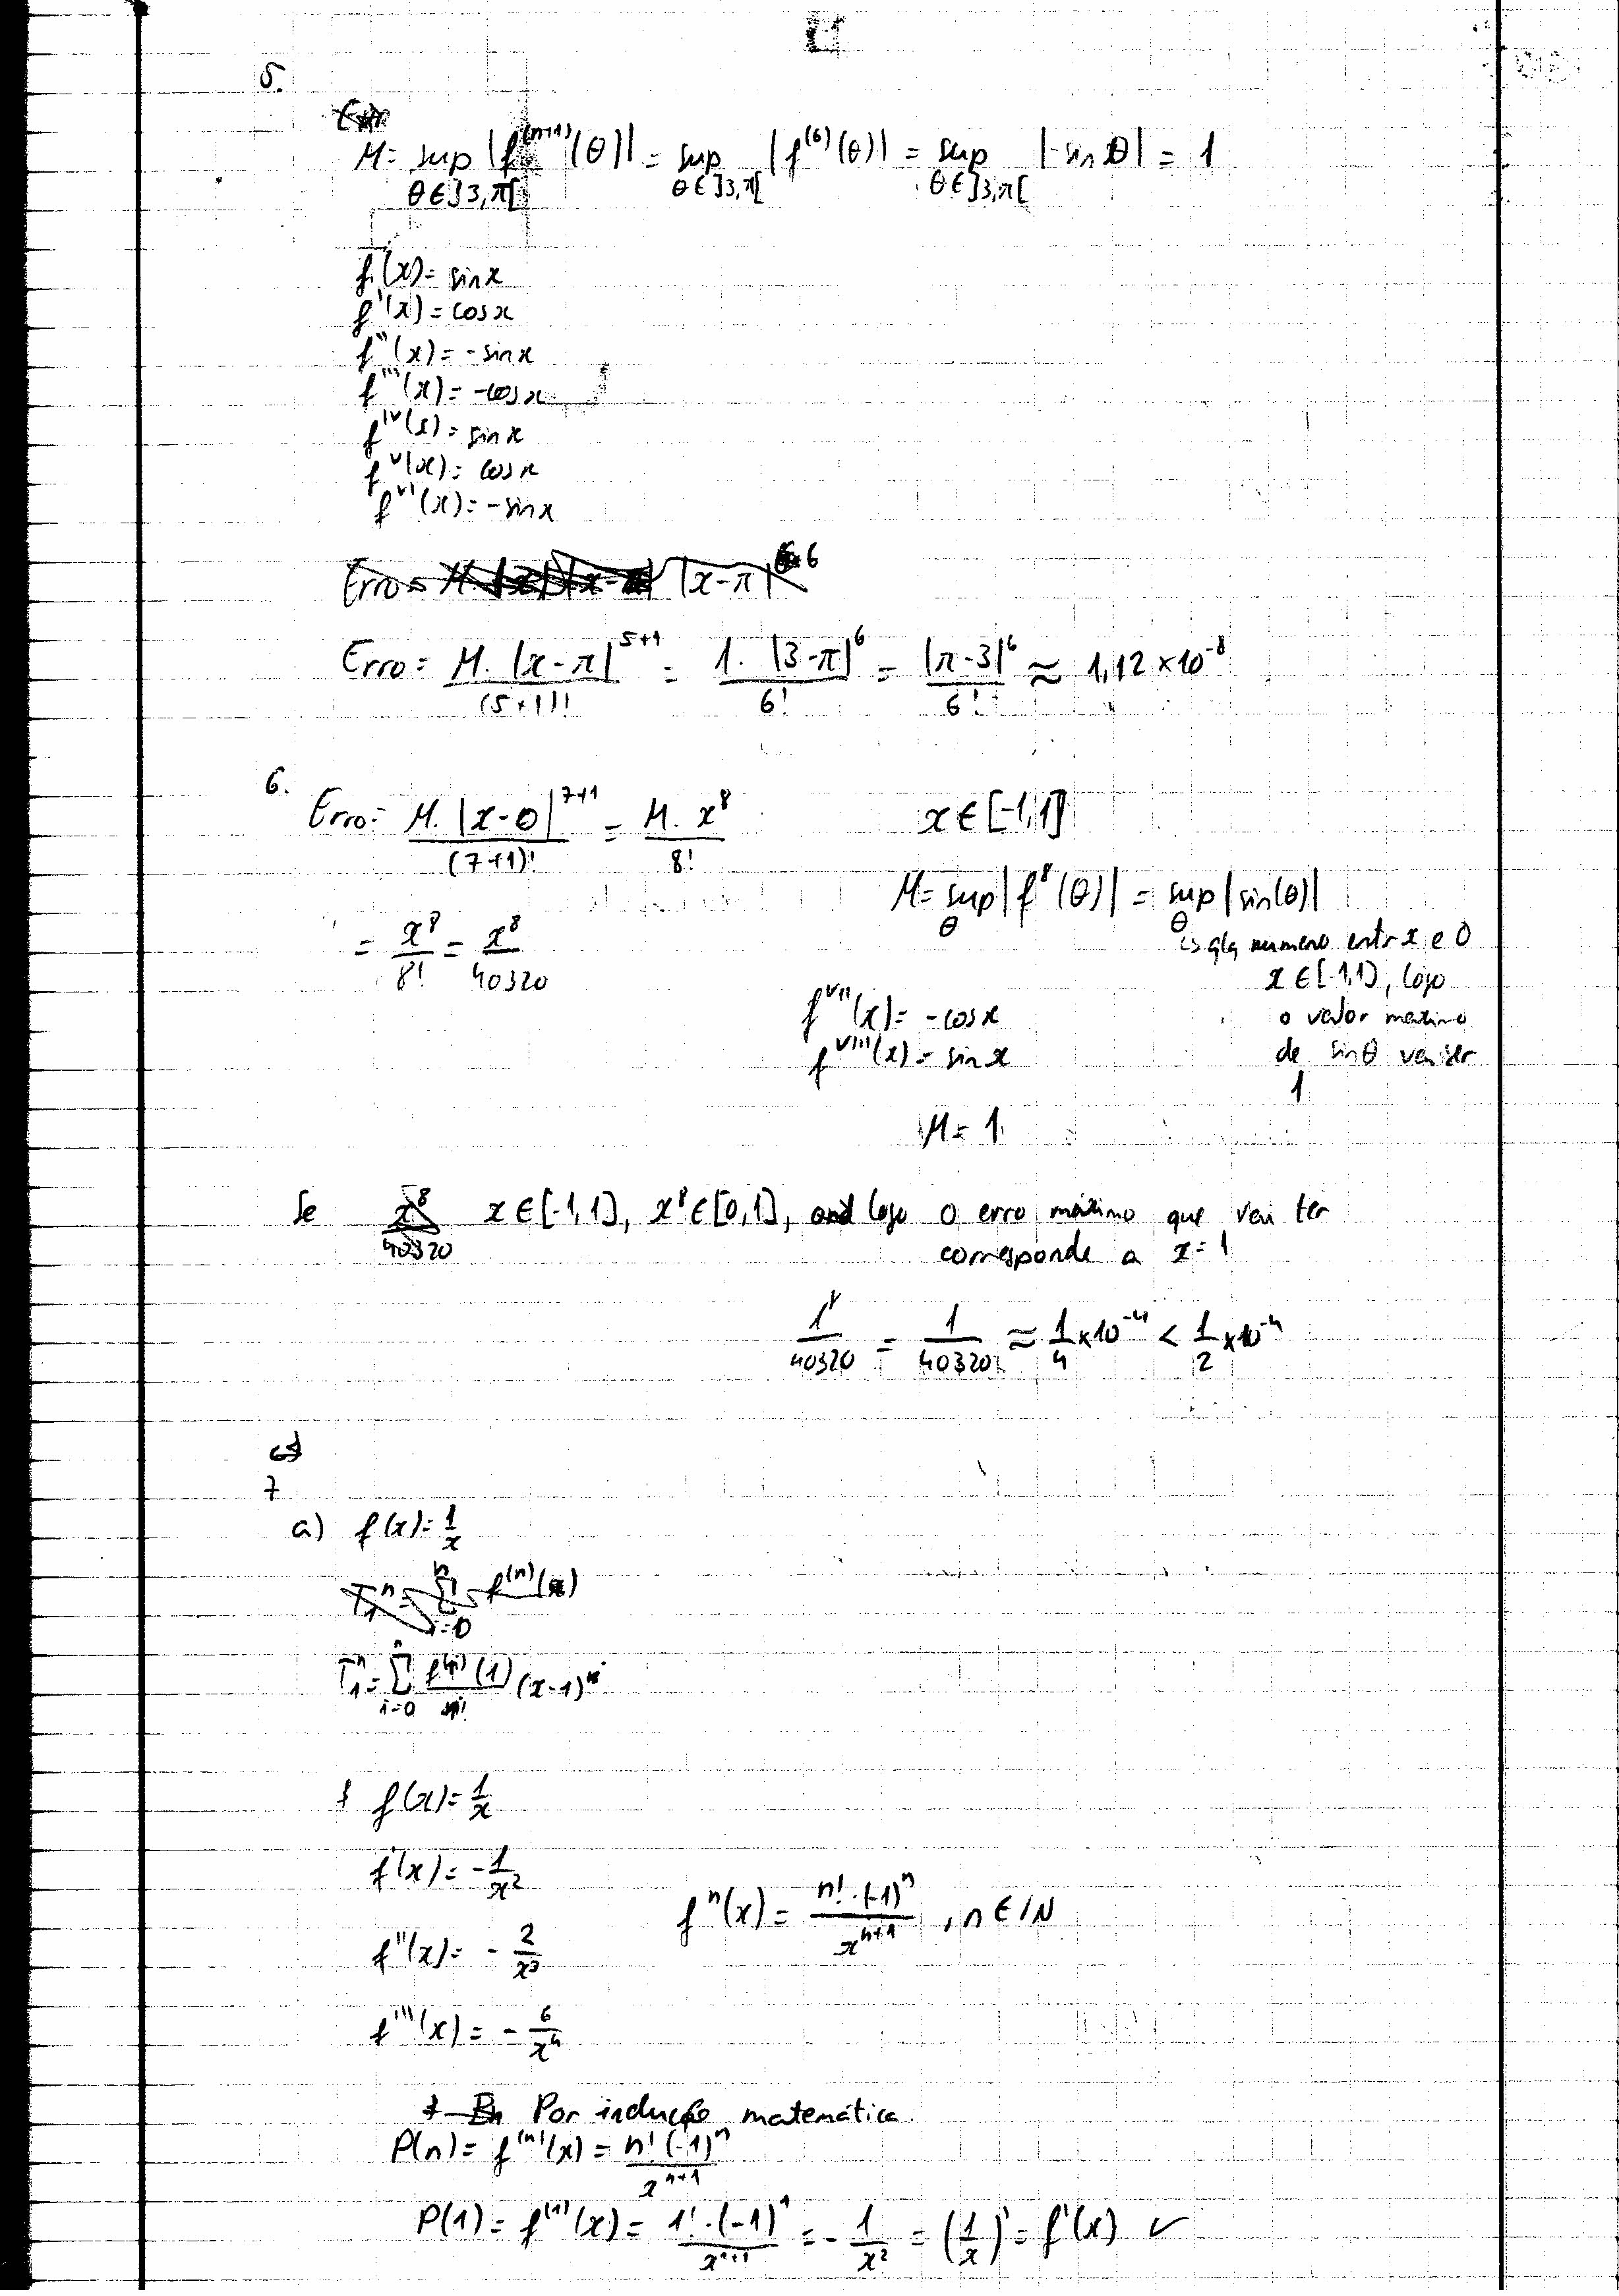 5.
M = sup |f^(n+1)(θ)| = sup |f^(6)(θ)| = sup |-sin θ| = 1
θ∈]3,π[ θ∈]3,π[ θ∈]3,π[
f(x) = sin x
f'(x) = cos x
f''(x) = -sin x
f'''(x) = -cos x
f^IV(x) = sin x
f^V(x) = cos x
f^VI(x) = -sin x
Erro = |x-π|^6
Erro = M.|x-π|^(5+1) / (5+1)! = 1.|3-π|^6 / 6! = |π-3|^6 / 6! ≈ 1,12 × 10^-8
6.
Erro = M.|x-0|^(7+1) / (7+1)! = M.x^8 / 8! x ∈ [-1,1]
M = sup_θ |f^8(θ)| = sup_θ |sin(θ)|
= x^8 / 8! = x^8 / 40320
↳ qlq numero entr x e 0
x ∈ [-1,1], logo
o valor maximo
de sinθ vai ser
1
f^VII(x) = -cos x
f^VIII(x) = sin x
M = 1
Se x^8/40320 x ∈ [-1,1], x^8 ∈ [0,1], logo o erro máximo que vai ter
corresponde a x = 1
1^8/40320 = 1/40320 ≈ 1/4 × 10^-4 < 1/2 × 10^-4
7
a) f(x) = 1/x
T_1^n = Σ_{i=0}^n f^(n)(x)
T_1^n = Σ_{i=0}^n f^(i)(1)/i! (x-1)^i
f(x) = 1/x
f'(x) = -1/x^2
f^n(x) = n!.(-1)^n / x^(n+1), n ∈ IN
f''(x) = - 2/x^3
f'''(x) = - 6/x^4
Por indução matemática.
P(n) = f^(n)(x) = n!(-1)^n / x^(n+1)
P(1) = f^(1)(x) = 1!.(-1)^1 / x^(1+1) = - 1/x^2 = (1/x)' = f'(x) ✓